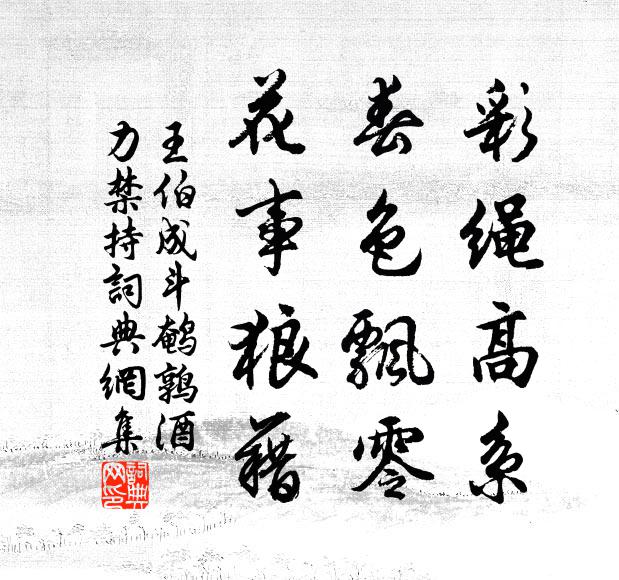 彩绳高系
春色飄零
花事狼藉
王伯成斗鹌鹑酒
力禁持詞典網集
詞典网印